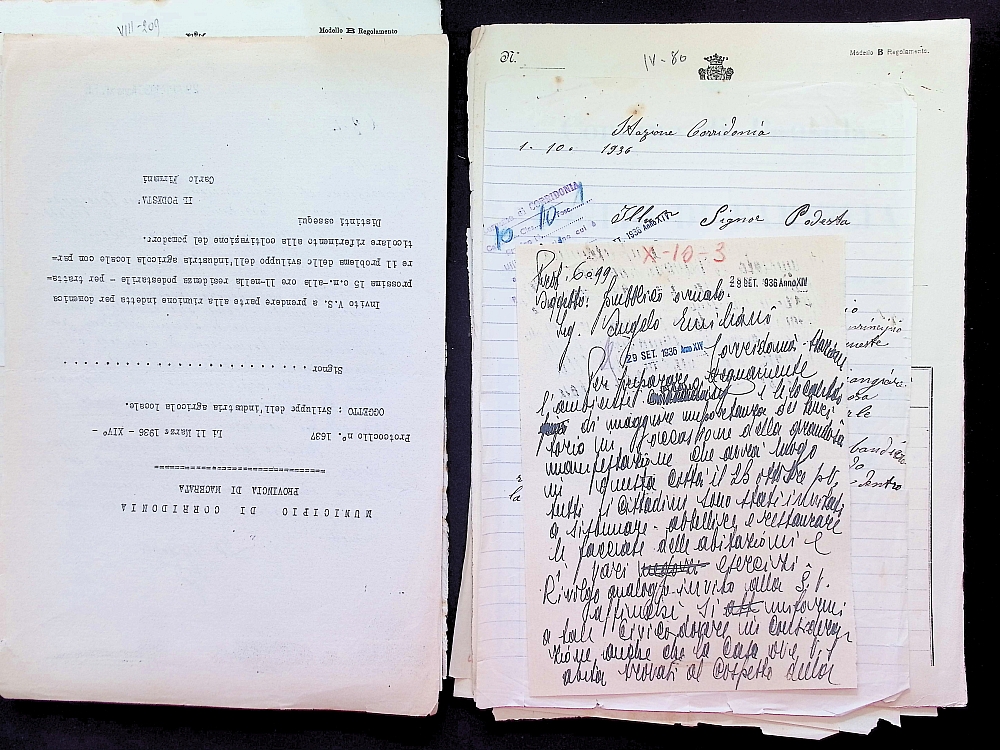 VIII-209
Modello B Regolamento
MUNICIPIO DI CORRIDONIA
PROVINCIA DI MACERATA
==========================
Protocollo n° 1637 Li 11 Marzo 1936 - XIV°
OGGETTO : Sviluppo dell'industria agricola locale.
Signor ..............................
Invito V.S. a prendere parte alla riunione indetta per domenica
prossima 15 c.m.-alle ore 11-nella residenza podestarile - per tratta=
re il problema dello sviluppo dell'industria agricola locale con par=
ticolare riferimento alla coltivazione del pomodoro.
Distinti ossequi
IL PODESTA'
Carlo Firmani
N.
IV-80
Modello B Regolamento.
Stazione Corridonia
1. 10. 1936
Comune di CORRIDONIA
10 10 1
Ill Signor Podesta
SET. 1936 Anno XIV
X-10-3
Prot. 6099
29 SET. 1936 Anno XIV
Oggetto: Pubblico ornato.
Sig. Angelo Emiliani
29 SET. 1936 Anno XIV
Corridonia
Per preparare degnamente
l'ambiente e le località
di maggiore importanza del terri
torio in occasione della grandiosa
manifestazione che avrà luogo
in questa città il 25 ottobre p.v.
tutti i cittadini sono stati invitati
a sistemare - abbellire e restaurare
le facciate delle abitazioni e
vari negozi esercizi.
Rivolgo analogo invito alla S.V.
affinchè si uniformi
a tale civico dovere in considera
zione anche che la Casa ove V.S.
abita trovasi al cospetto della
principio
dentro
la